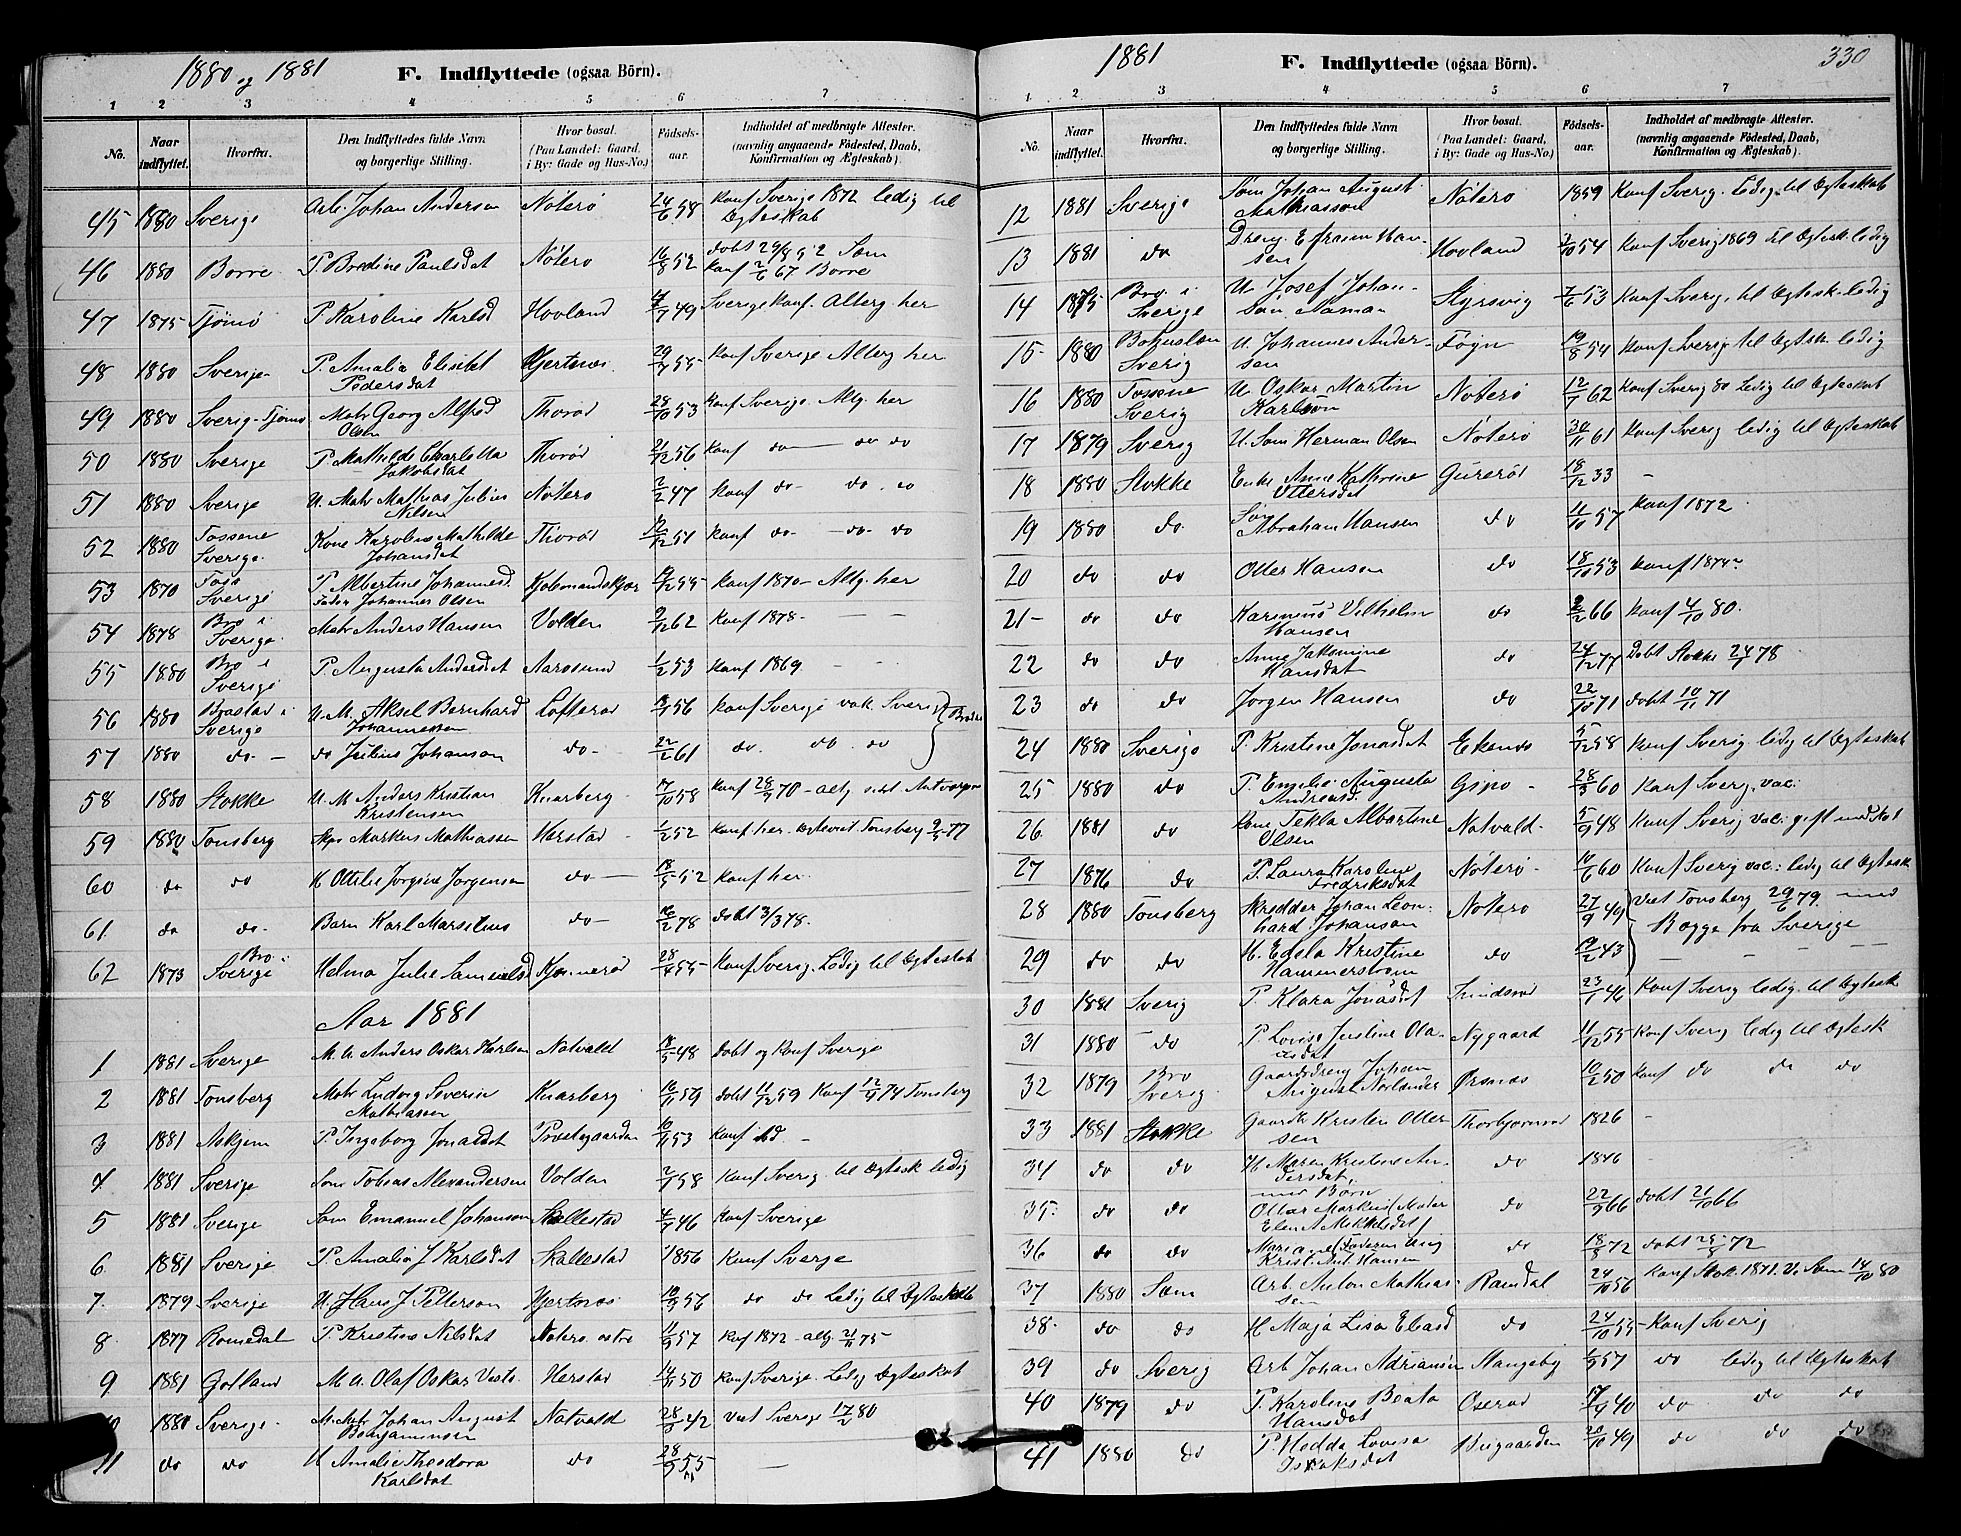 1880 og 1881
F. Indflyttede (ogsaa Börn).
1 2 3 4 5 6 7
No. Naar indflyttet. Hvorfra. Den Indflyttedes fulde Navn og borgerlige Stilling. Hvor bosat. (Paa Landet: Gaard, i By: Gade og Hus-No.) Födsels-aar. Indholdet af medbragte Attester. (navnlig angaaende Födested, Daab, Konfirmation og Ægteskab).
45 1880 Sverige Arb. Johan Andersen Nöterö 24/6 58 Konf Sverige 1872 ledig til Ægteskab
46 1880 Borre P. Bredine Paulsdat Nöterö 16/8 52 döbt 29/8 52 Sem
Konf 2/6 67 Borre
47 1875 Tjömö P. Karoline Karlsd Hovland 4/7 49 Sverige konf. Alterg her
48 1880 Sverige P. Amalia Elisabet Pedersdat Hjertnes 29/7 55 Konf Sverige Alterg her
49 1880 Sverig-Tjömö Matr Georg Alfred Olsen Thoröd 28/10 53 Konf Sverige. Altg. her
50 1880 Sverige P. Mathilde Charlotta Jakobsdat Thoröd 21/12 56 Konf do do do
51 1880 Sverige U. Matr Mathias Julius Nilsen Nöterö 2/2 47 Konf do do
52 1880 Tossene Sverige Kone Karoline Mathilde Johansdat Thoröd 12/12 51 Konf do do do
53 1870 Sverige P. Albertine Johannesd.
Fader Johannes Olsen Kjöbmandskjær /12 55 Konf 1870 - Altg. her
54 1878 Bro i Sverige Matr Anders Hansen Volden 9/12 62 Konf 1878 - -
55 1880 Bro i Sverige P. Augusta Andersdat Aarösund 1/2 53 Konf 1869 - -
56 1880 Brastad i Sverige U. M. Aksel Bernhard Johannessen Löfteröd 56 Konf Sverige vak. Sverig
57 1880 do do Julius Johanson do 22/2 61 do do do
58 1880 Stokke U. M Anders Kristian Kristensen Knarberg 7/10 58 Konf 28/9 70 - altg sidst Antverpen
59 1880 Tönsberg Skps Markus Mathiassen Herstad 1/2 52 Konf her. Ægteviet Tönsberg 77
60 do do H Ottilie Jörgine Jörgensen do 18/5 52 Konf her.
61 do do Barn Karl Marselius do 16/2 78 döbt 3/3 78.
62 1873 Bro i Sverige Helma Julie Samuelsd Kjönneröd 28/4 55 Konf Sverige. Ledig til Ægteskab
Aar 1881
1 1881 Sverige M. U. Anders Oskar Karlsen Natvald 18/5 48 döbt og Konf Sverige
2 1881 Tönsberg Matr Ludvig Severin Mathiassen Knarberg 16/11 59 döbt 11/12 59 Konf 12/4 74 Tönsberg
3 1881 Askjem P. Ingeborg Jonasdat Prestegaarden 10/11 53 Konf
4 1881 Sverige Söm Tobias Alexandersen Volden 2/1 58 Konf Sverig til Ægtesk ledig
5 1881 Sverige Söm Emanuel Johansen Skallestad 4/9 46 Konf Sverige
6 1881 Sverige P. Amalia J Karlsdat Skallestad 1856 Konf Sverge
7. 1879 Sverige U. Hans J Petterson Hjertnes 10/9 57 do do Ledig til Ægteskab
8 1877 Romedal P. Kristine Nilsdat Nöterö östre 11/9 57 Konf 1872 - altg. 21/11 75
9 1881 Gotland M. U. Olaf Oskar Herstad 14/11 50 Konf Sverige. Ledig Ægteskab
10 1880 Sverige M. Matr Johan August Benjaminsen Natvald 28/3 42 Viet Sverige 17/2 80
11 do do H Amalie Theodora Karlsdat do 28/9 55 -
1881
F. Indflyttede (ogsaa Börn).
330
1 2 3 4 5 6 7
No. Naar indflyttet. Hvorfra. Den Indflyttedes fulde Navn og borgerlige Stilling. Hvor bosat. (Paa Landet: Gaard, i By: Gade og Hus-No.) Födsels-aar. Indholdet af medbragte Attester. (navnlig angaaende Födested, Daab, Konfirmation og Ægteskab).
12 1881 Sverige Söm Johan August Mathiasson Nöterö 1859 Konf Sverig. Ledig til Ægteskab
13 1881 do Dreng. Efraim Hansen Hovland 2/10 54 Konf Sverig 1869 til Ægtesk. ledig
14 1875 Bro i Sverige U. Josef Johanson, Söman Styrsvig 7/6 53 Konf Sverig. til Ægtesk. ledig
15 1880 Bohuslen Sverig U. Johannes Andersen Föyn 19/8 54 Konf Sverig til Ægtesk. ledig
16 1880 Tossene Sverig U Oskar Martin Karlsön Nöterö 12/7 62 Konf Sverig 80 Ledig til Ægteskab
17 1879 Sverig U. Söm Herman Olsen Nöterö 30/11 61 Konf Sverig ledig til Ægteskab
18 1880 Stokke Enke Anne Kathrine Ottersdat Gureröd 18/12 33 -
19 1880 do Søn Abraham Hansen do 11/10 57 Konf 1872
20 do do Otter Hansen do 18/10 53 Konf 1874
21 do do Karinius Vilhelm Hansen do 2/2 66 Konf 4/10 80.
22 do do Anne Jakomine Hansdat do 24/12 77 Döbt Stokke 24/1 78
23 do do Jörgen Hansen do 22/10 71 döbt 10/11 71
24 1880 Sverige P. Kristine Jonasdat Ekenes 5/12 58 Konf Sverig. ledig til Ægteskab
25 1880 do P. Emelie Augusta Andreasd. Gipö 28/3 60 Konf Sverg. vac.
26 1881 do Kone Tekla Albertine Olsen Natvald 5/9 48 Konf Sverig vac. gift med
27 1876 do P. Laura Karoline Fredriksdat Nöterö 10/6 60 Konf Sverig vac: ledig til Ægtesk
28 1880 Tönsberg Skredder Johan Leonhard Johanson Nöterö 27/9 49 viet Tönsberg 29/6 79. med
29 do do H. Edela Kristine Hammerström do 19/2 43 Begge fra Sverige
30 1881 Sverig P. Klara Jonasdat Trindsröd 23/1 46 Konf Sverig ledig til Ægtesk
31 1880 do P Lovise Justine Olausdat Nygaard 11/12 55 Konf Sverig ledig til Ægtesk
32 1879 Bro Sverig Gaardsdreng Johan August Norlander Örsnes 10/2 50 Konf do do do
33 1881 Stokke Gaardb Kristen Ottersen Thorbjörnröd 1826 -
34 do do H Maren Kristine Andersdat, do 1846 -
med Börn
35 do do Ottar Markus (Moder Elen A Mikkelsdat) do 22/9 66 döbt 21/10 66
36 do do Mariane (Faderen Ung Krist. Ant. Hansen do 18/8 72 döbt 25/8 72
37 1880 Sem Arb Anton Mathiassen Ramdal 24/10 56 Konf Stok. 1871. Vi. Sem 14/10 80
38 do do H Maja Lisa Eliasd do 24/10 55 Konf Sverig
39 do Sverig Arb Johan Adriansen Stangeby 57 do ledig til Ægteskab
40 1879 do P. Karoline Beata Hansdat Oseröd 17/9 40 do do do
41 1880 do P Hedda Lovisa Isaksdat Heigaarden 20/10 49 do do do